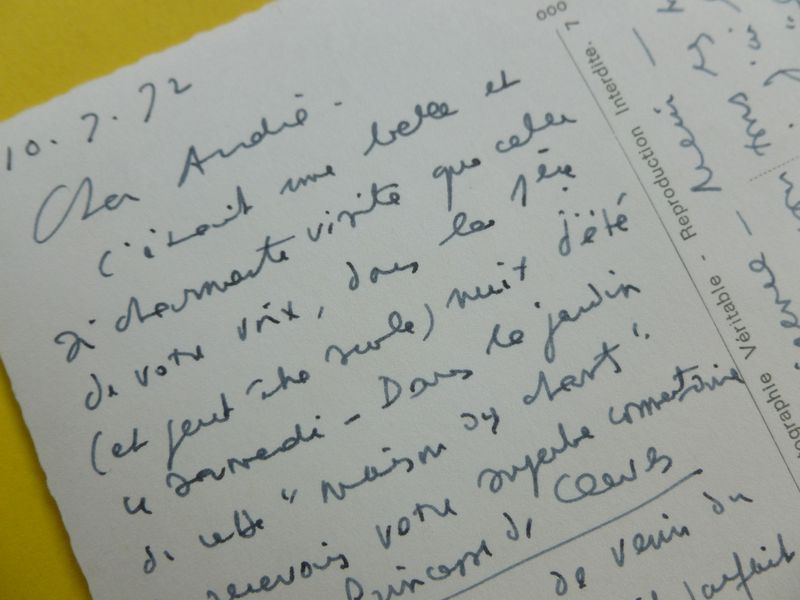 10.7.72
Cher André.
C'était une belle et
si charmante visite que celle
de votre voix, dans la 1ère
(et peut être seule) nuit d'été
ce samedi - Dans le jardin
de cette "maison des chants".
recevois votre superbe commentaire
Princesse de Clèves
de venir du
parfait
ographie Véritable - Reproduction Interdite. 7
000